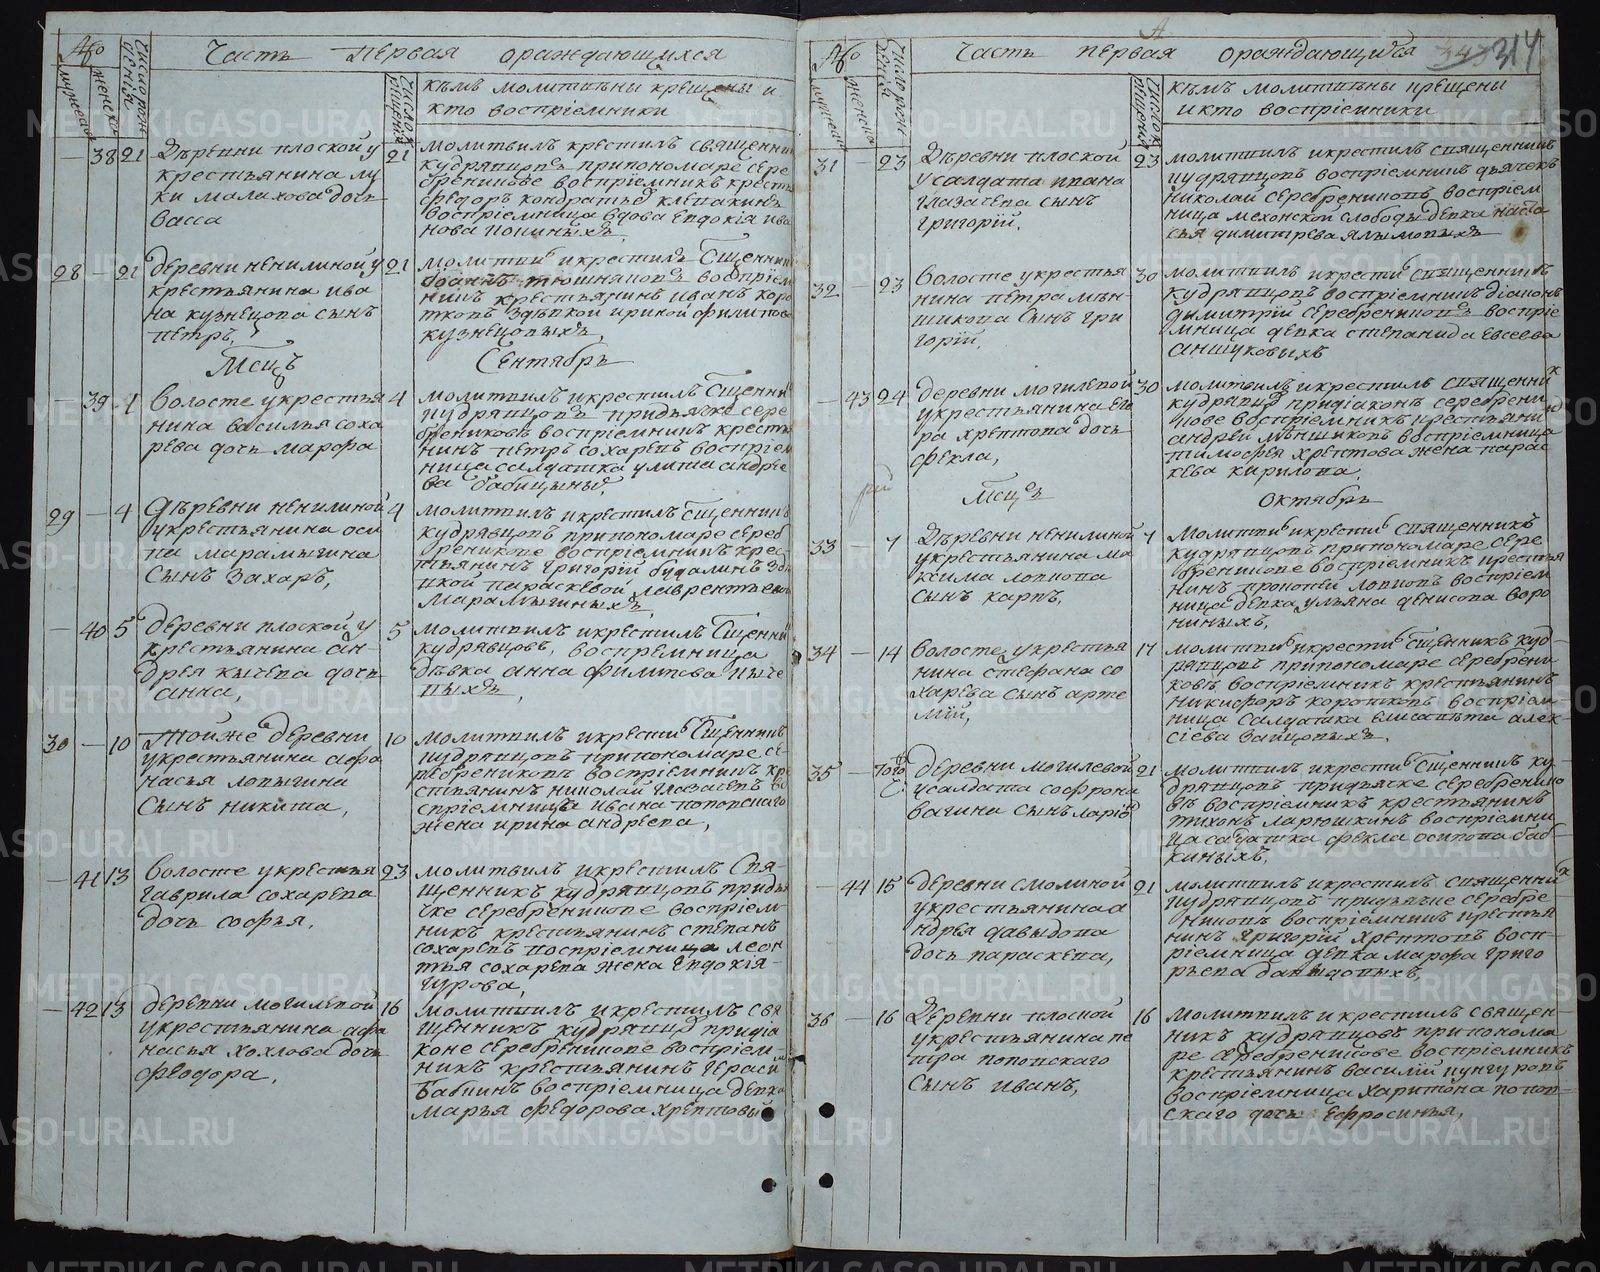 Часть Первая ораждающихся
№
мужеска
женска
число рождения
число крещения
къмъ молитвѣны крещены и
кто воспрiемники
38 21 21
Дѣревни плоской у
крестьянина лу
ки малахова дочь
васса
молитвилъ крестилъ священникъ
кудрявцовъ припономаре сере
брениковѣ воспрiемникъ кресть
федоръ кондратьевъ
воспрiемница вдова евдокiя ива
нова
28 21 21
деревни ненилиной у
крестьянина ива
на кузнецова сынъ
петръ,
молитвилъ икрестилъ Сщенникъ
Iоаннъ тюшняковъ воспрiем
никъ крестьянинъ иванъ коро
тковъ здѣвкой ириной филипово
кузнецовыхъ
Мсцъ Сентябрь
39 1 4
волосте укрестья
нина василья соха
рева дочь марфа
молитвилъ икрестилъ Сщенник
кудрявцовъ придьячке сере
брениковѣ воспрiемникъ кресть
нинъ петръ сохаревъ воспрiем
ница салдатка улита андрее
ва бабицына,
29 4 4
Дѣревни ненилиной
укрестьянина оси
па марамыгина
Сынъ Захаръ,
молитвилъ икрестилъ Сщенникъ
кудрявцовъ припономаре сереб
рениковѣ воспрiемникъ крес
тьянинъ григорiй будалинъ здѣ
вкой параскевой лаврентьевой
марамыгиныхъ
40 5 5
деревни плоской у
крестьянина ан-
дрея кычева дочь
анна,
молитвилъ икрестилъ Сщенникъ
кудрявцовъ, воспремница
дѣвка анна филипова кыче
выхъ,
30 10 10
Тойже деревни
укрестьянина афа
насья лопыгина
Сынъ никита,
молитвилъ икрестилъ Сщенникъ
кудрявцовъ припономаре се-
ребрениковѣ воспрiемникъ кре
стьянинъ николай глазачевъ во
спрiемница ивана поповскаго
жена ирина андреева,
41 13 23
волосте укрестья
гаврила сохарева
дочь софья,
молитвилъ икрестилъ Свя-
щенникъ кудрявцовъ придья
чке серебрениковѣ воспрiем-
никъ крестьянинъ степанъ
сохаревъ воспрiемница леон
тья сохарева жена Евдокiя-
гурова,
42 13 16
деревни могилевой
укрестьянина афа
насья хохлова дочь
феодора,
молитвилъ икрестилъ Свя
щенникъ кудрявцовъ придiа
коне серебрениковѣ воспрiем-
никъ крестьянинъ гераси
бабкинъ воспрiемница девка
марья федорова хрептовы
Часть первая ораждающихся
343 314
№
мужеска
женска
число рождения
число крещения
къмъ молитвѣны крещены
икто воспрiемники
31 23 23
Дѣревни плоской
усалдата ивана
глазачева сынъ
григорiй,
молитвилъ икрестилъ священникъ
кудрявцовъ воспрiемникъ дьячекъ
николай серебрениковъ воспрiем
ница мехонской слободы девка наста
сья димитрева алымовыхъ
32 23 30
волосте укрестья
нина петра мѣн-
шикова сынъ гри
горiй,
молитвилъ икрестилъ священникъ
кудрявцовъ воспрiемникъ дiаконъ
димитрiй серебрениковъ воспрiе
мница девка степанида евсеева
аншуковыхъ
43 24 30
деревни могилевой
укрестьянина его
ра хрептова дочь
фекла,
молитвилъ икрестилъ священникъ
кудрявцовъ придiаконѣ серебрени
ковѣ воспрiемникъ крестьянинъ
андрей мѣншиковъ воспрiемница
тимофея хрептова жена парас
кева кирилова,
Мсцъ Октябрь
33 7 7
Дѣревни ненилиной
укрестьянина ма
ксима ловцова
сынъ карпъ,
Молитвилъ икрестилъ священникъ
кудрявцовъ припономаре сере
брениковѣ воспрiемникъ крестья
нинъ прокопей ловцовъ воспрiем
ница девка ульяна денисова воро
ниныхъ,
34 14 17
волосте укрестья
нина стефана со
харева сынъ арте
мiй,
молитвилъ икрестилъ сщенникъ куд-
рявцовъ припономаре серебрени
ковѣ воспрiемникъ крестьянинъ
никифоръ коротковъ воспрiем-
ница салдатка елисавета алек-
сiева зайцовыхъ.
35 того ч. 21
Деревни могилевой
усалдата софрона
вагина сынъ ларiо
молитвилъ икрестилъ Сщенникъ ку-
дрявцовъ придьячке серебрѣнико
вѣ воспрiемникъ крестьянинъ
тихонъ ларюшкинъ воспрiемни
ца садатка фекла осипова баб-
киныхъ,
44 15 21
деревни смолиной
укрестьянина а
ндрея давыдова
дочь параскева,
молитвилъ икрестилъ священникъ
кудрявцовъ придьячке серебре-
никовъ воспрiемникъ крестья
нинъ григорiй хрептовъ восп-
рiемница девка марфа григо
рьева давыдовыхъ,
36 16 16
Деревни плоской
укрестьянина пе
тра поповскаго
Сынъ иванъ,
молитвилъ и крестилъ священ-
никъ кудрявцовъ припонома
ре серебрениковѣ воспрiемникъ
крестьянинъ василiй кунгуровъ
воспрiемница харитона попов-
скаго дочь Ефросинья,
METRIKI.GASO-URAL.RU